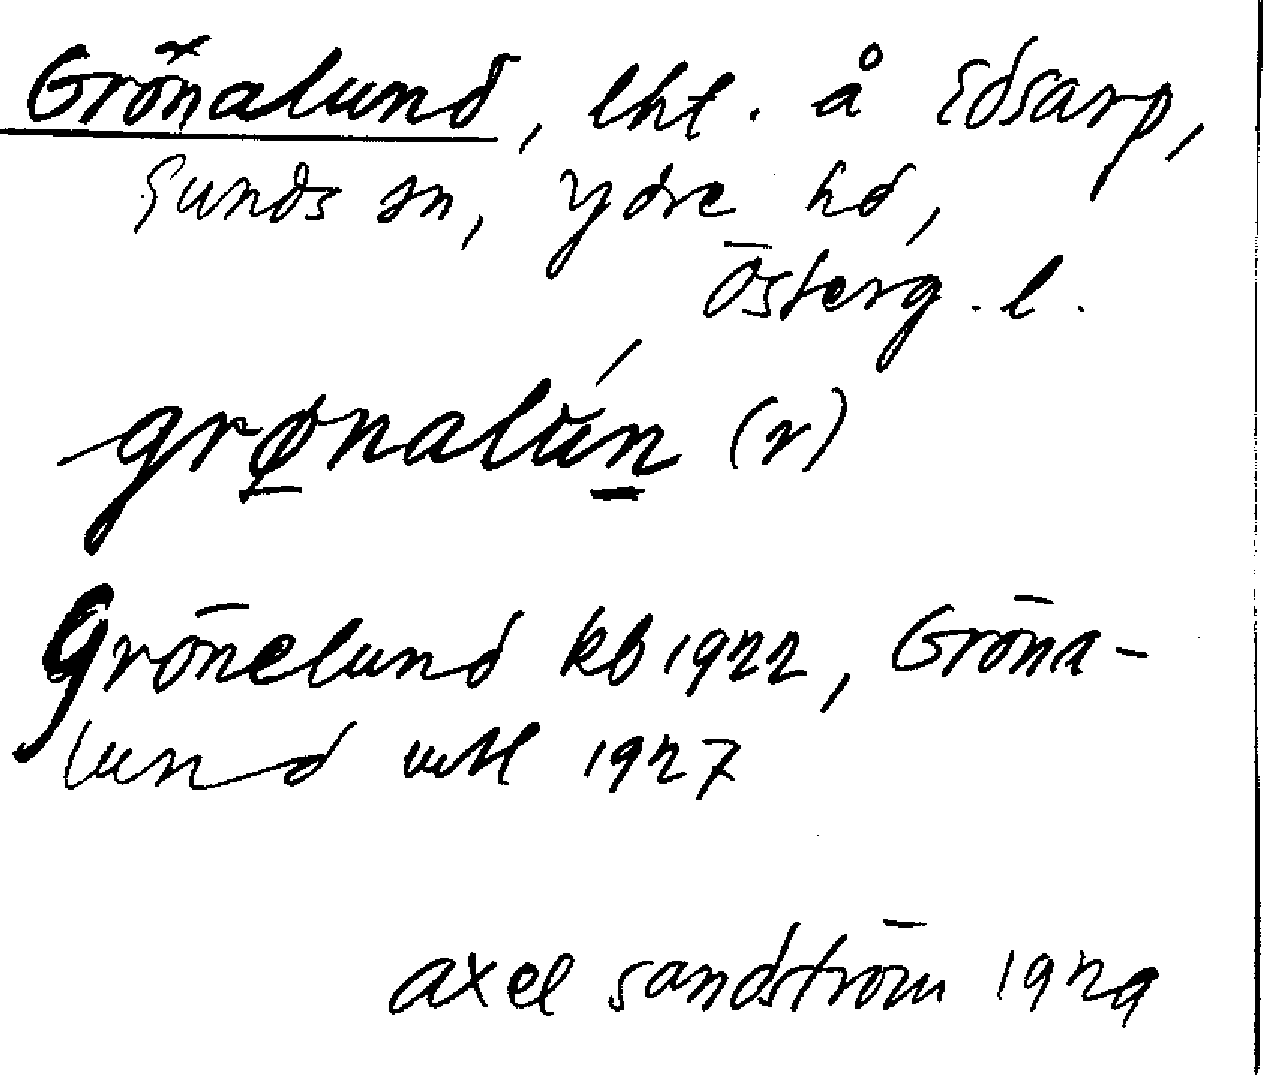 Grönalund, lht. å Edsarp,
Sunds sn, Ydre hd,
Österg. l.
grønalún (r)
Grönelund kb 1922, Gröna-
lund vtl 1927
Axel Sandström 1929